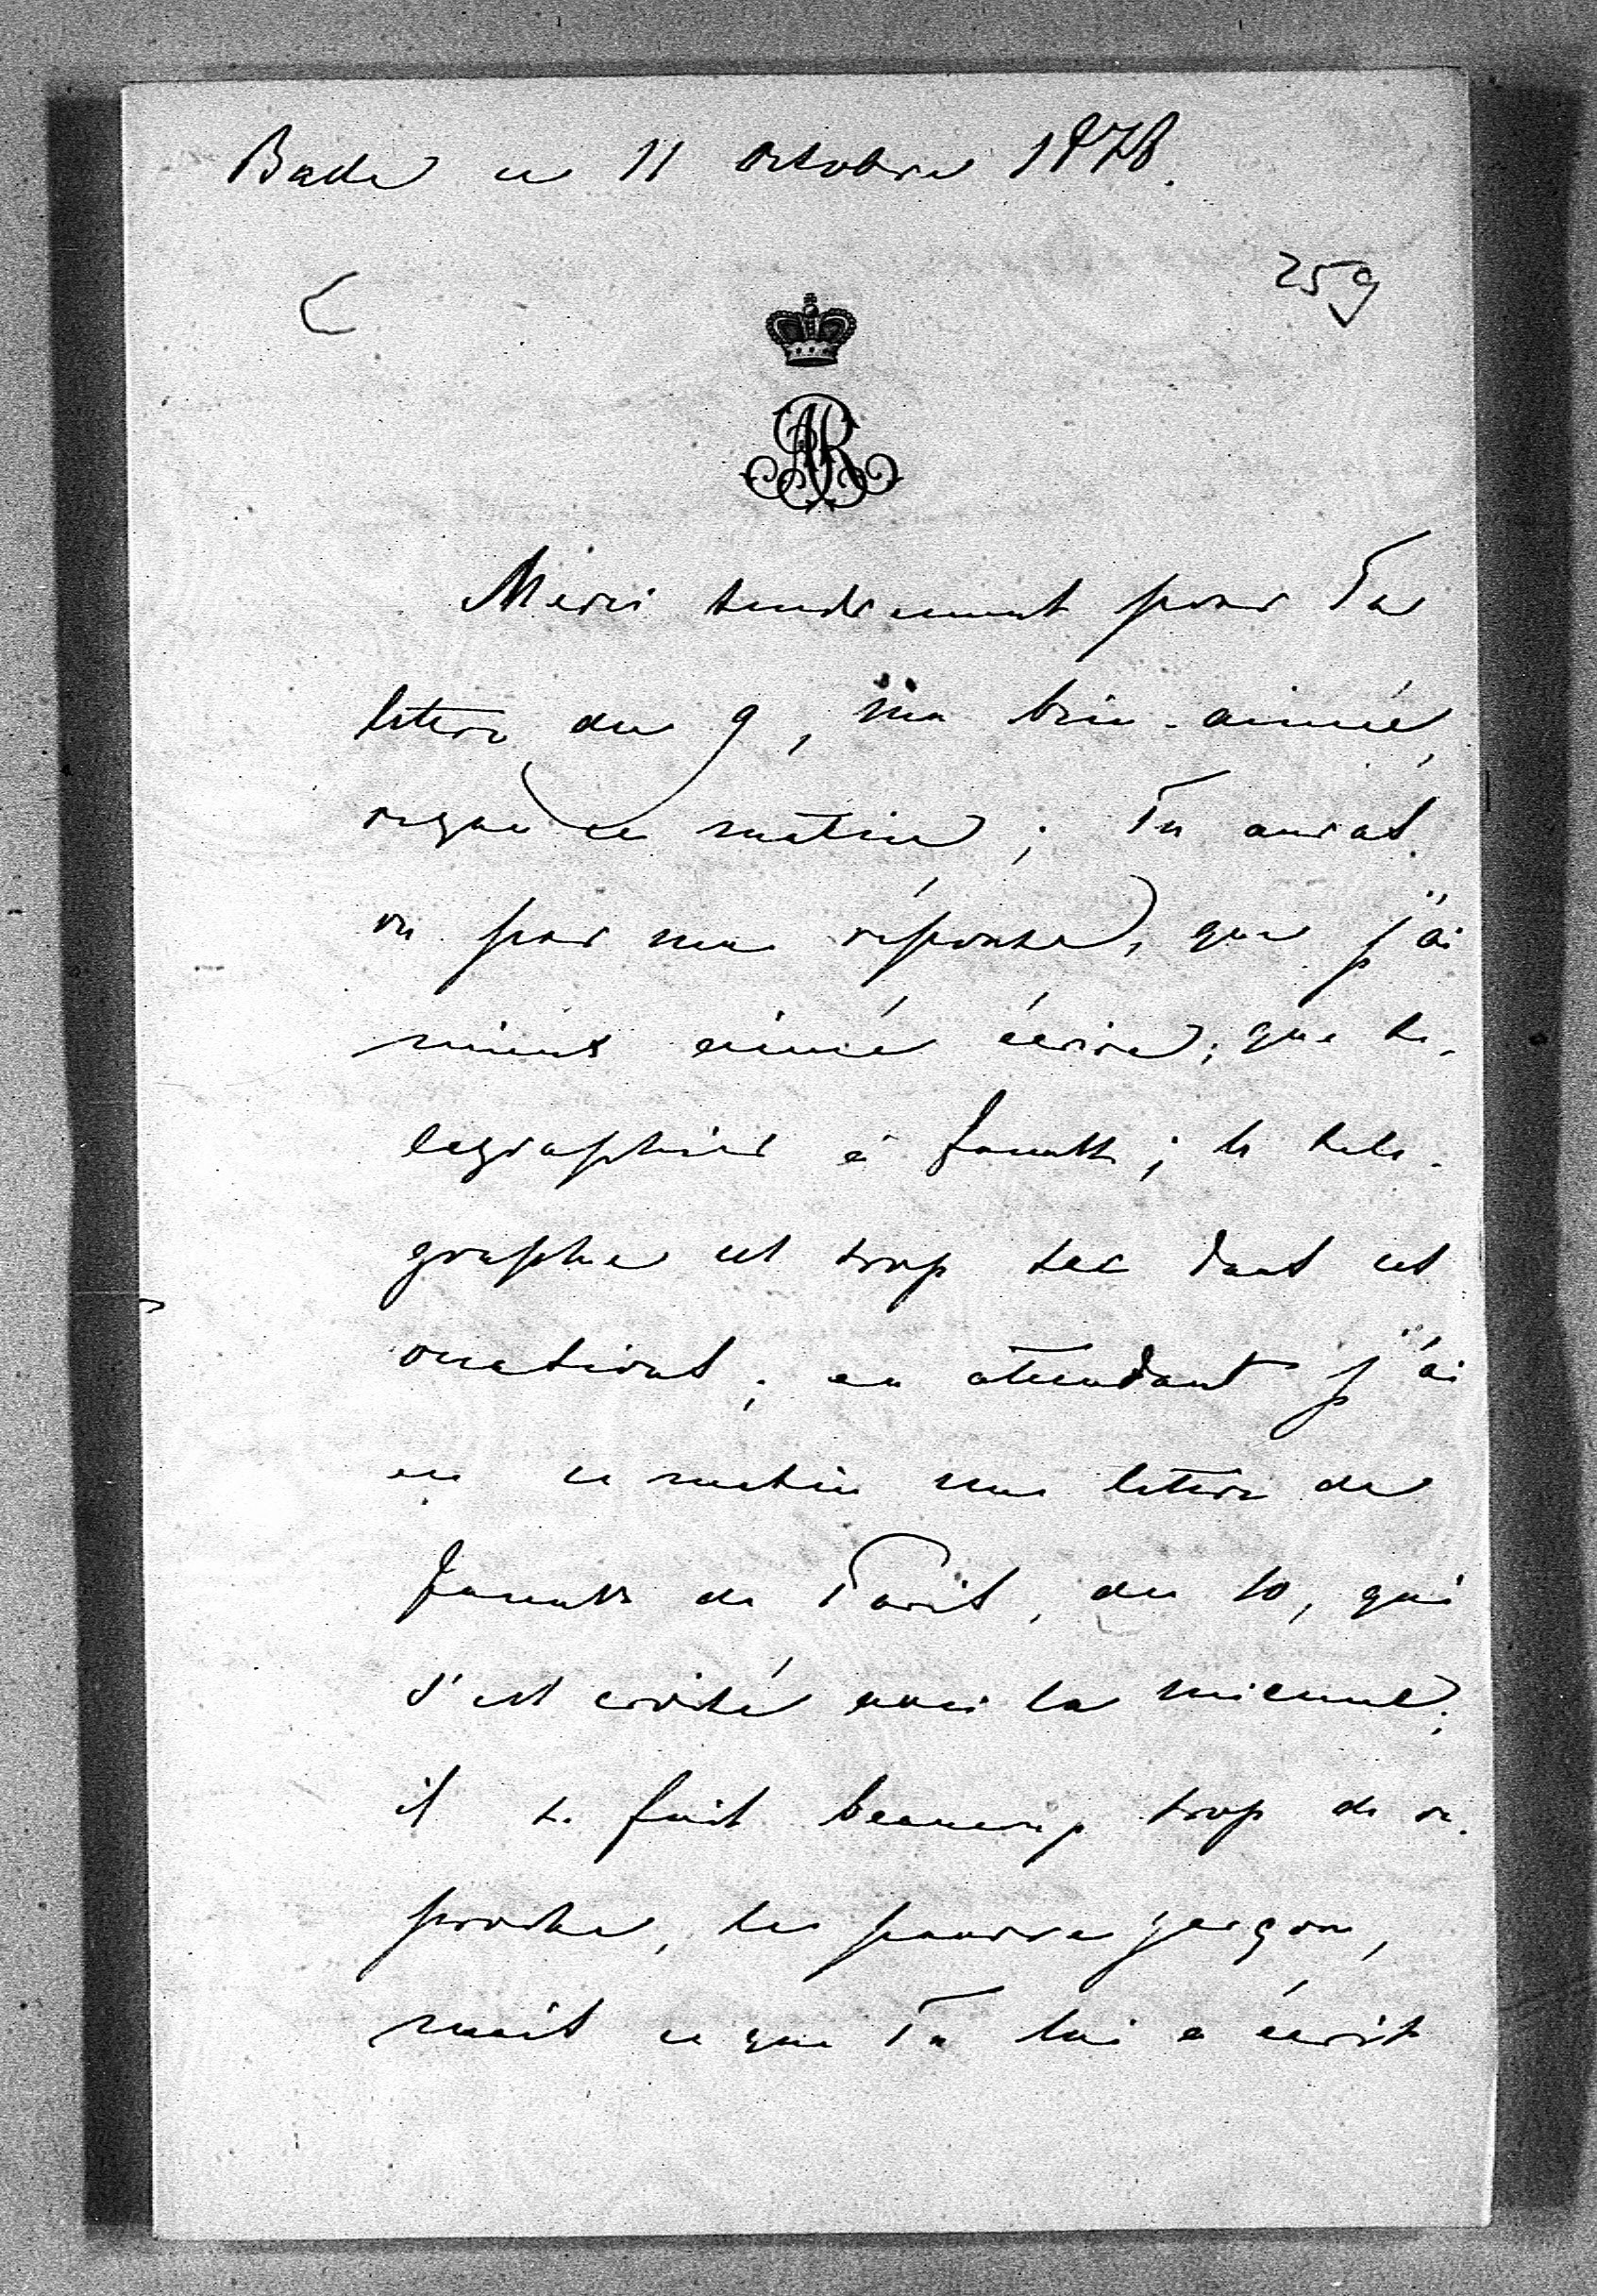 Bade ce 11 Octobre 1878.
259
AR
Merci tendrement pour Ta
lettre du 9, ma bien-aimée,
reçue ce matin; Tu auras
vu par ma réponse, que j'ai
mieux aimé écrire, que te-
legraphier à ; le tele-
graphe est trop sec dans ces
; en attendant j'ai
eu ce matin une lettre de
de Paris, du 10, qui
s'est croisé avec la mienne;
il se fait beaucoup trop de re-
proche, le pauvre garçon,
mais ce que Tu lui a écrit